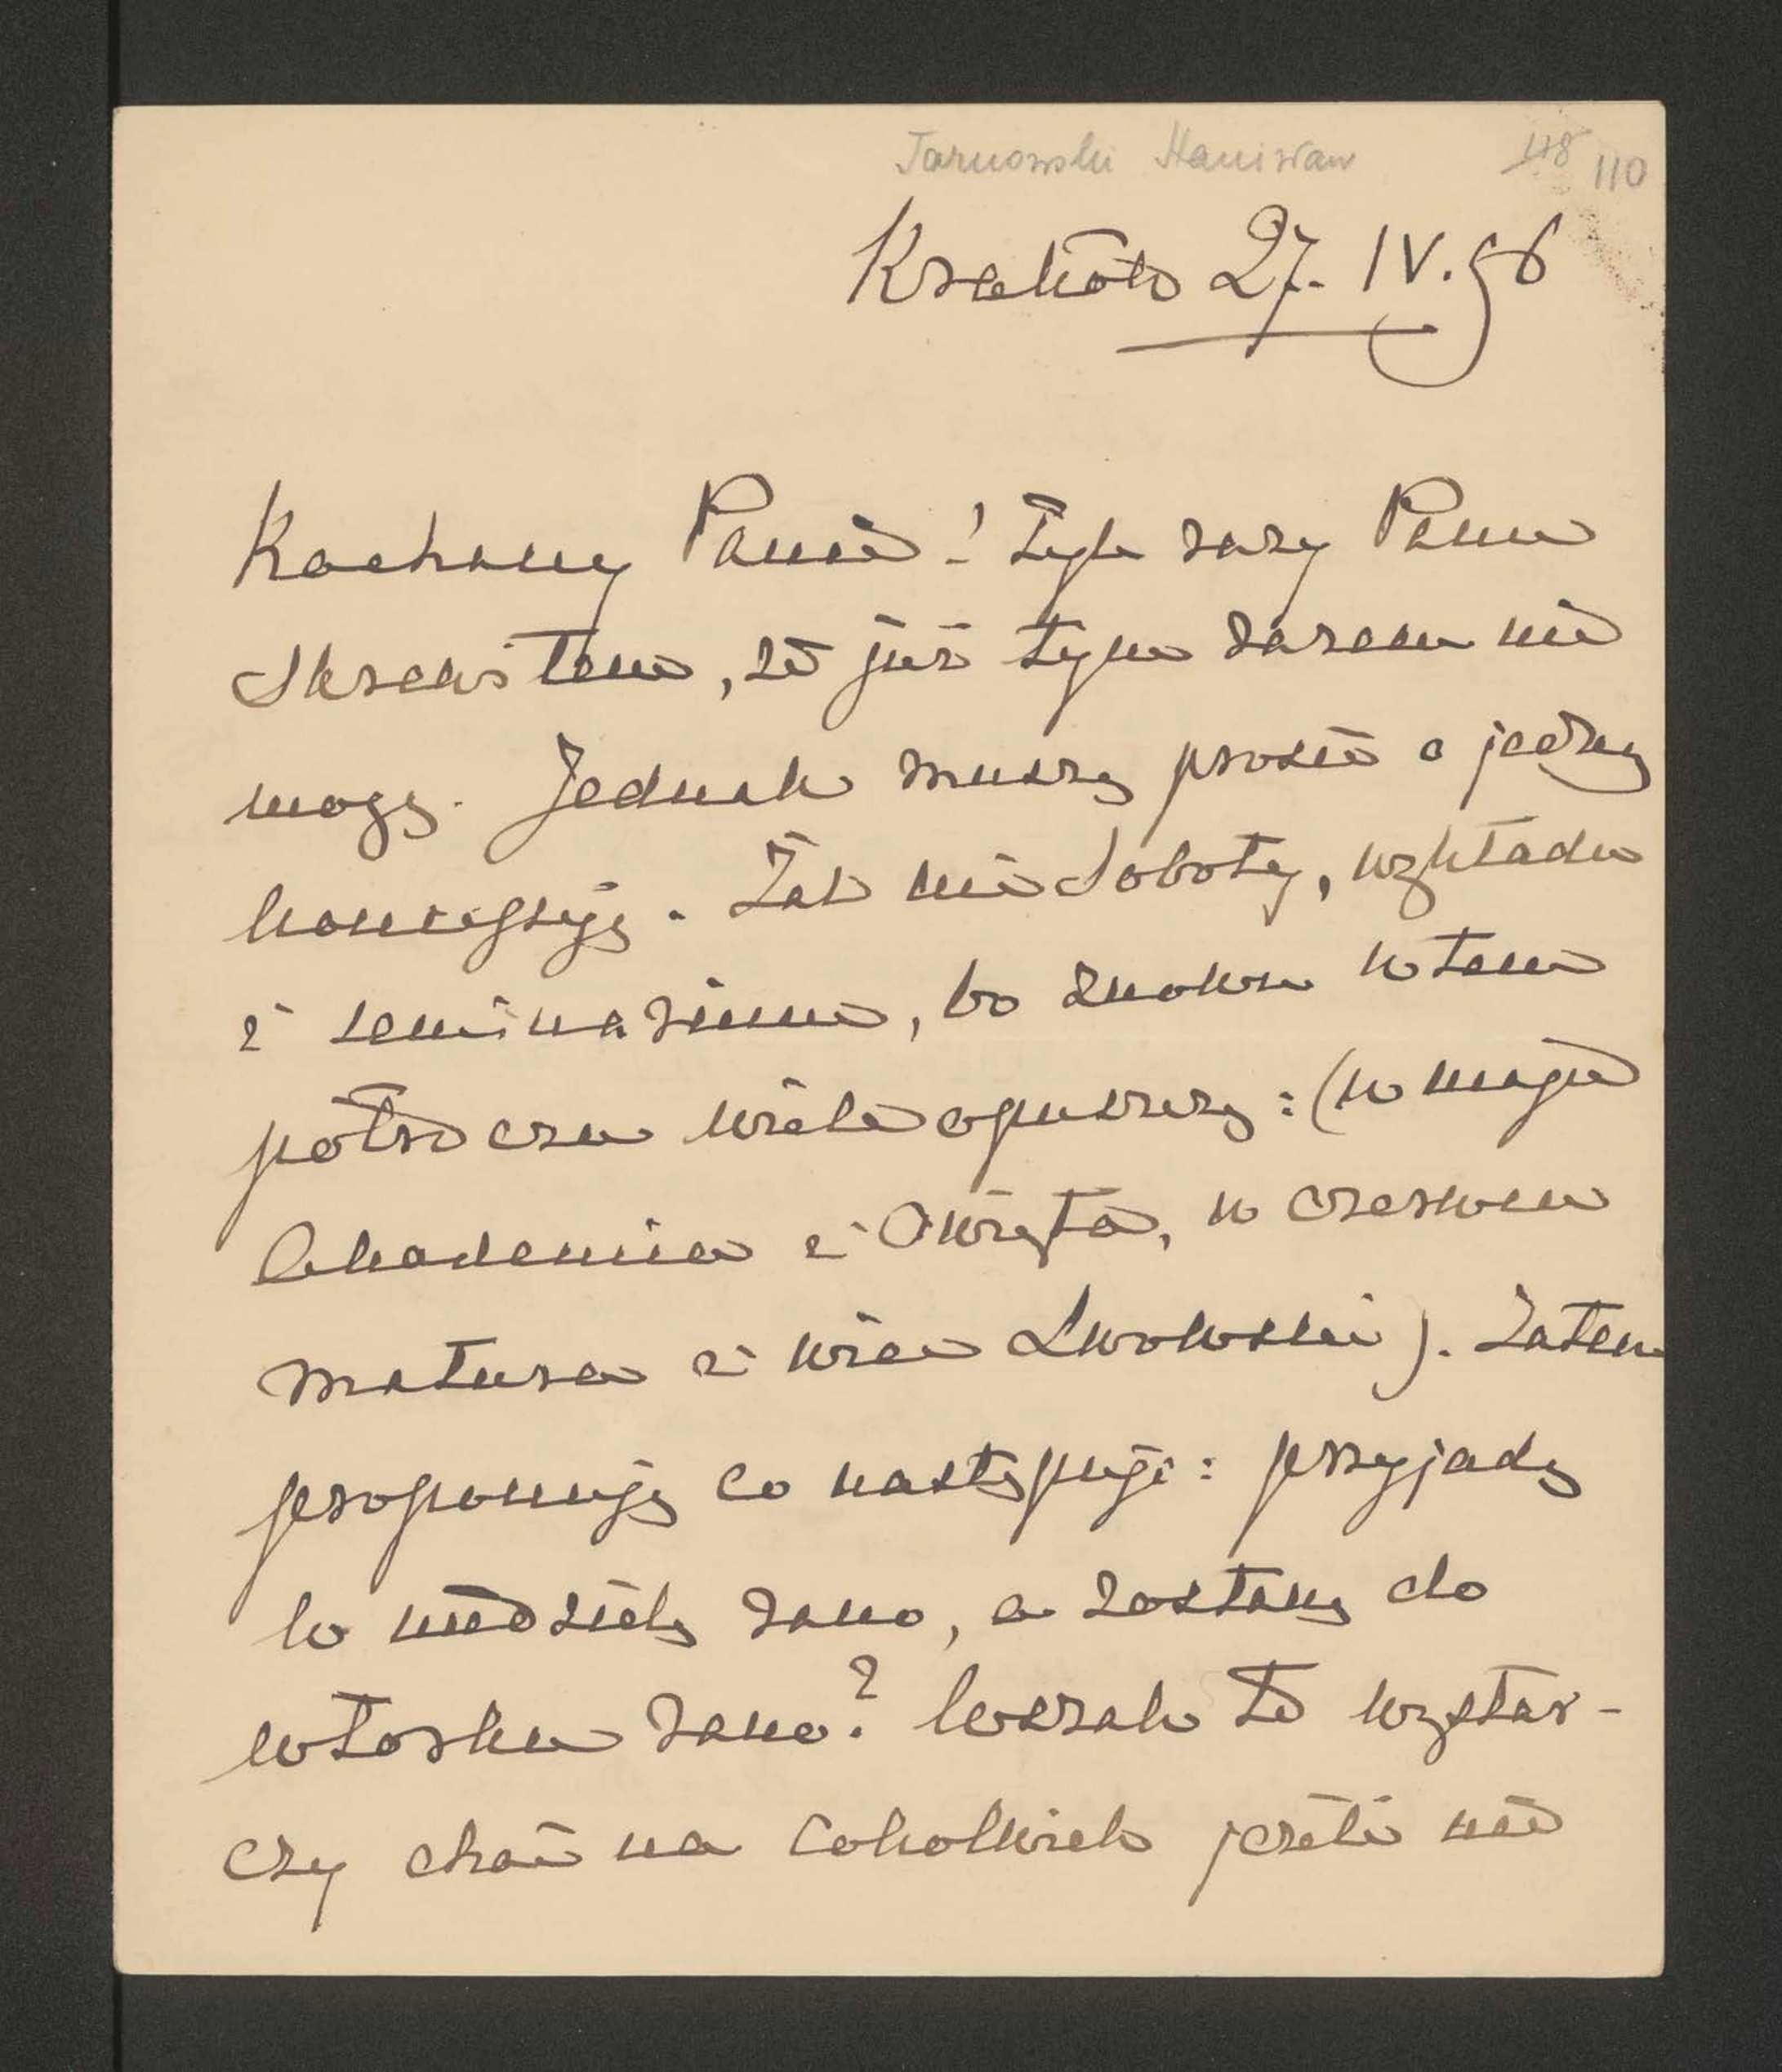 Tarnowski Stanisław 118 110
Kraków 27. IV. 96
Kochany Panie! Tyle razy Panu
skrewiłem, że już tym razem nie
mogę. Jednak muszę prosić o jedną
koncessyję. Żal mi Soboty, wykładu
i seminarium, bo znowu w tem
półroczu wiele opuszczę: (w maju
Akademia i Święta, w czerwcu
matura i wiec Lwowski). Zatem
proponuję co następuje: przyjadę
w niedzielę rano, a zostanę do
wtorku rano? Wszak to wystar-
czy choć na cokolwiek jeżeli nie